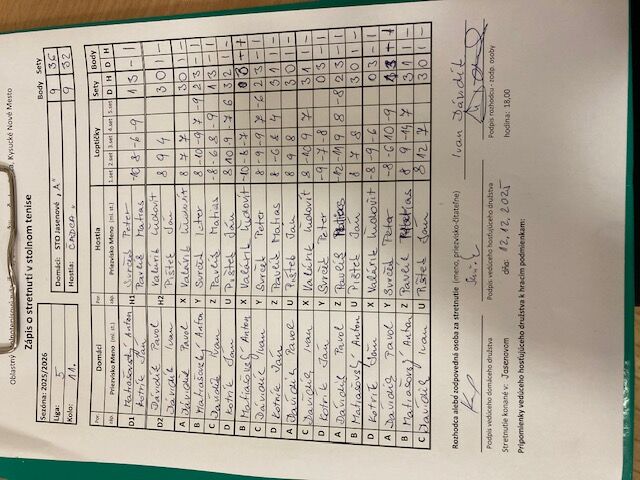 Kysucké Nové Mesto
Zápis o stretnutí v stolnom tenise
Sezóna: 2025/2026
Liga: 5
Kolo: 11.
Domáci: STO Jasenové "A"
Hostia: ČADCA
Body Sety
9 36
9 32
Por. Domáci Por. Hostia Loptičky Sety Body
záp. Priezvisko Meno (ml. št.) záp. Priezvisko Meno (ml. št.) 1.set 2.set 3.set 4.set 5.set D H D H
D1 Matiašovský Anton H1 Svrček Peter -10 -8 -6 -9 1 3 - 1
Kotrík Ján Pavliš Matias
D2 Davidík Pavol H2 Valárik Ľudovít 8 9 4 3 0 1 -
Davidík Ivan Pištek Ján
A Davidík Pavol X Valárik Ľudovít 8 7 7 3 0 1 -
B Matiašovský Anton Y Svrček Peter 8 -10 -9 7 -9 2 3 - 1
C Davidík Ivan Z Pavliš Matias -8 -6 8 -9 1 3 - 1
D Kotrík Ján U Pištek Ján 8 10 -9 -7 6 3 2 1 -
B Matiašovský Anton X Valárik Ľudovít -10 -8 -7
C Davidík Ivan Y Svrček Peter 8 -9 -9 7 -6 2 3 - 1
D Kotrík Ján Z Pavliš Matias 8 -6 8 4 3 1 1 -
A Davidík Pavol U Pištek Ján 8 9 8 3 0 1 -
C Davidík Ivan X Valárik Ľudovít 8 -10 9 7 3 1 1 -
D Kotrík Ján Y Svrček Peter -9 -7 -8 0 3 - 1
A Davidík Pavol Z Pavliš Matias -12 -11 9 8 -8 2 3 - 1
B Matiašovský Anton U Pištek Ján 8 7 8 3 0 1 -
D Kotrík Ján X Valárik Ľudovít -8 -9 -6 0 3 - 1
A Davidík Pavol Y Svrček Peter -8 -6 10 -9
B Matiašovský Anton Z Pavliš Matias 8 9 -14 7 3 1 1 -
C Davidík Ivan U Pištek Ján 8 12 7 3 0 1 -
Rozhodca alebo zodpovedná osoba za stretnutie (meno, priezvisko-čitateľne) Ivan Davidík
Podpis vedúceho domáceho družstva Podpis vedúceho hosťujúceho družstva Podpis rozhodcu - zodp. osoby
Stretnutie konané v: Jasenovom dňa: 12.12.2025 hodina: 18,00
Pripomienky vedúceho hosťujúceho družstva k hracím podmienkam: